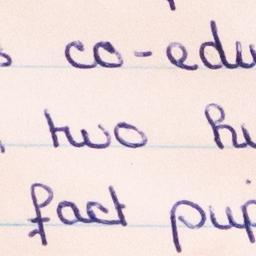 co-edu
two hu
fact pup